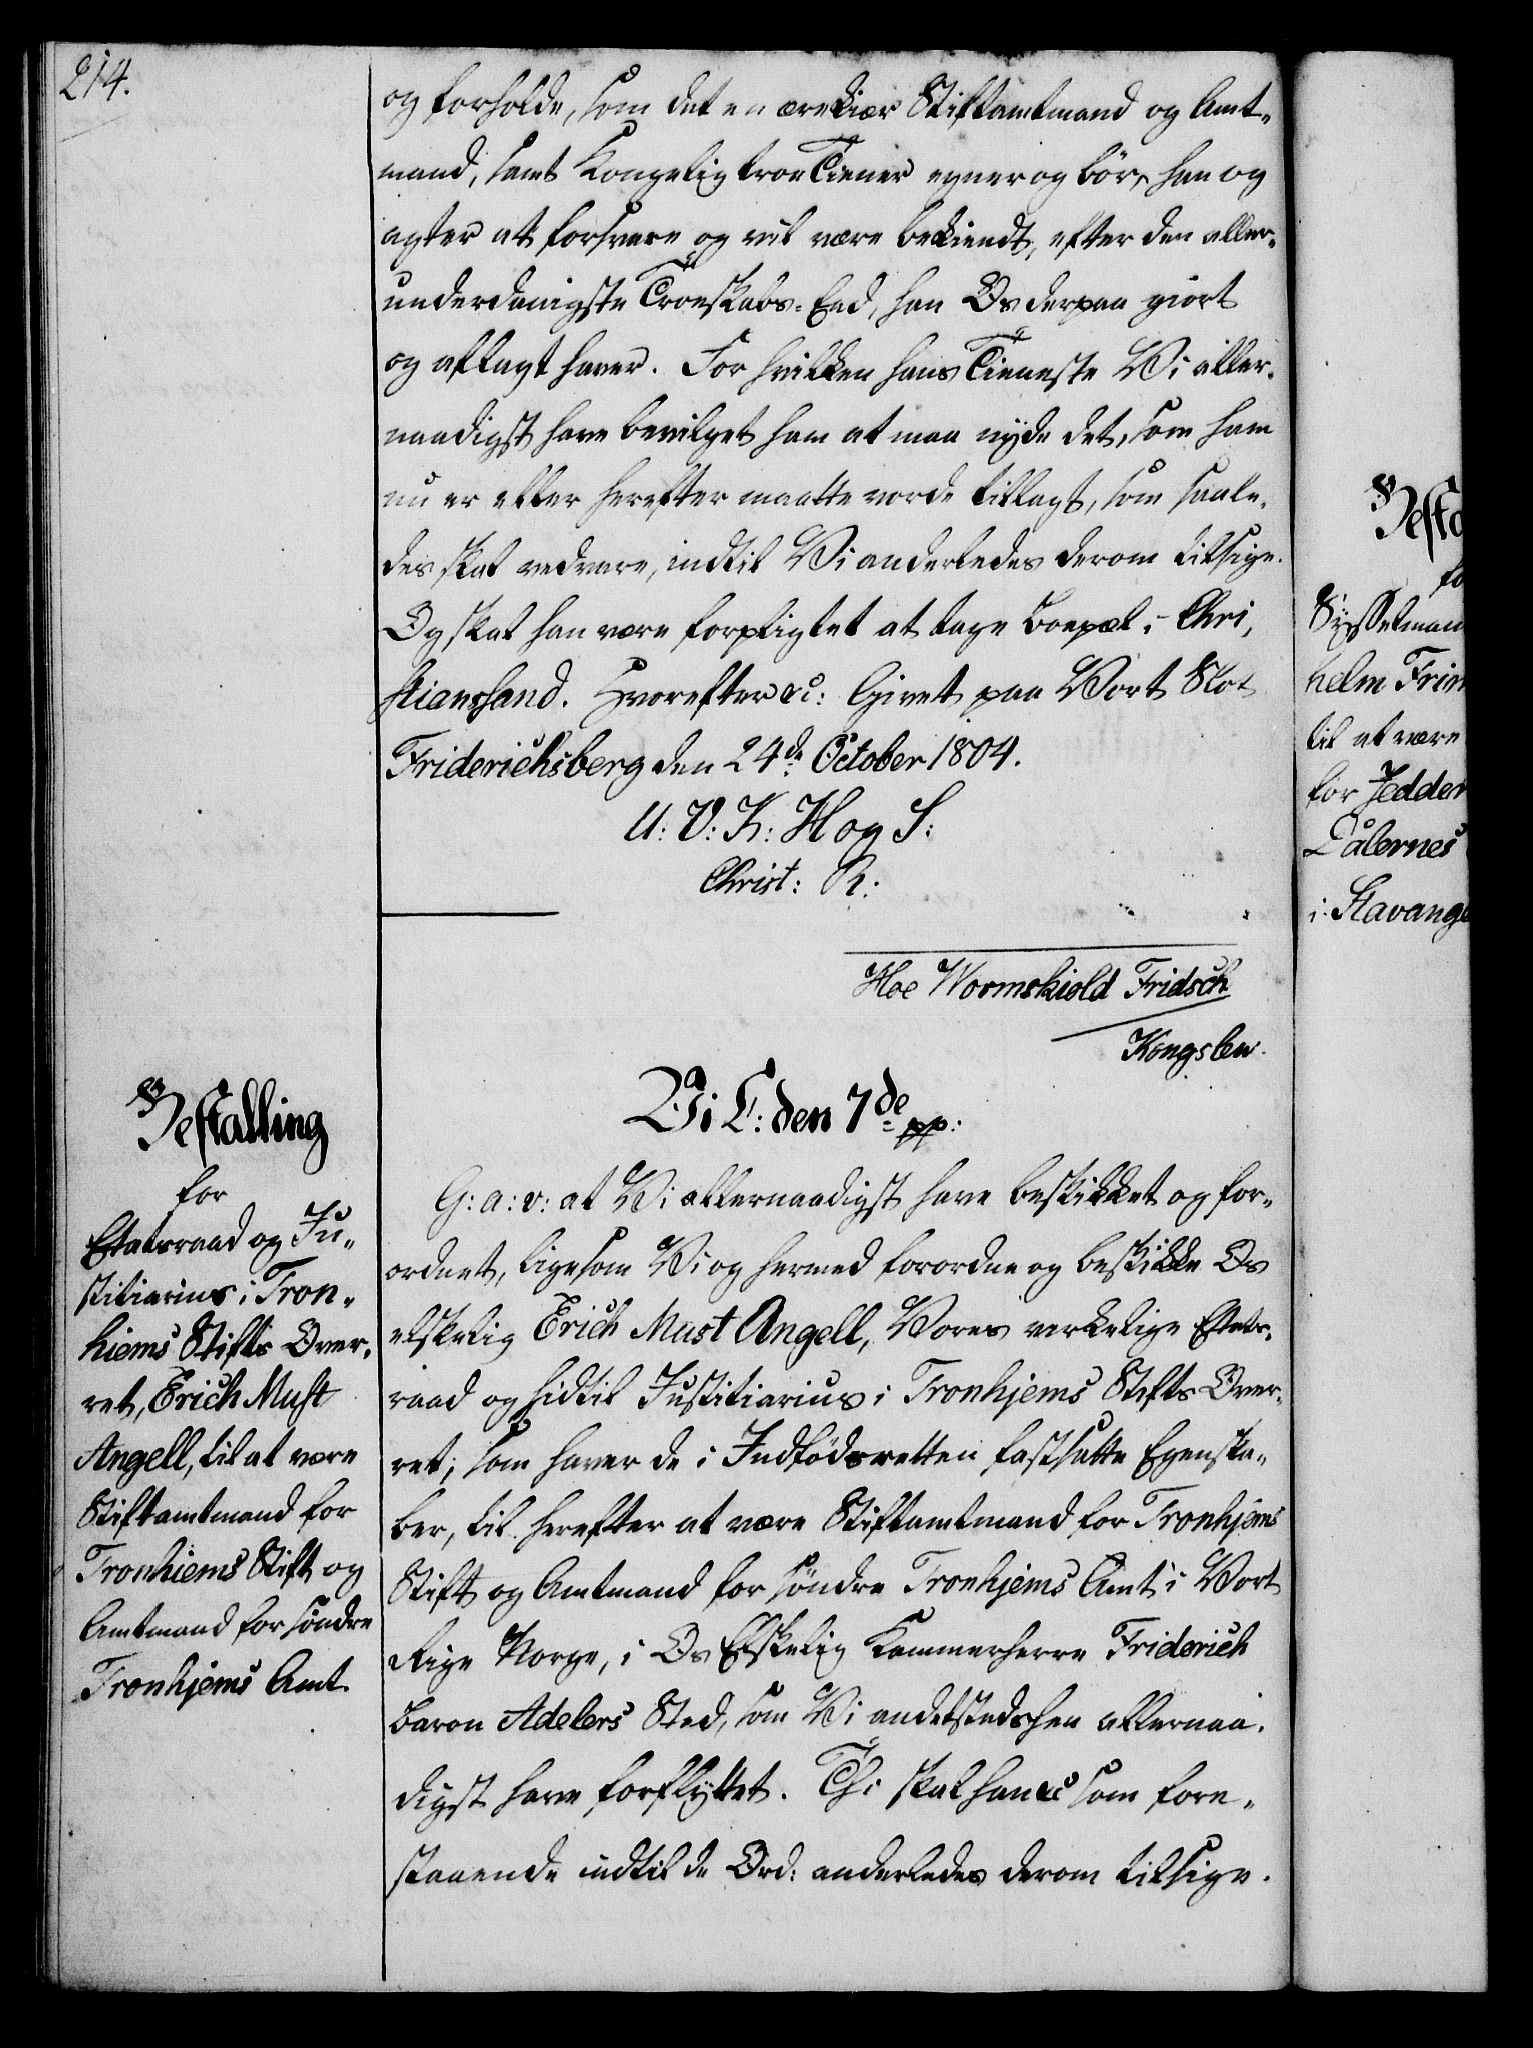 214.
og forholde, som det en ærekiær Stiftamtmand og Amt-
mand, samt Kongelig troe Tiener egner og bör, han og
agter at forsvare og vil være bekiendt, efter den aller-
underdanigste Troeskabs-Eed, han Os derpaa giort
og aflagt haver. For hvilken hans Tieneste Vi aller-
naadigst have bevilget ham at maa nyde det, som ham
nu er eller herefter maatte vorde tillagt, som saale-
des skal vedvare, indtil Vi anderledes derom tilsige.
Og skal han være forpligtet at tage Boepæl i Chri,
stianssand. Hvorefter ec: Givet paa Vort Slot
Friderichsberg den 24de October 1804.
U: V: K: H og S:
Christ: R:
Moe Wormskiold Fridsch
Kongslew.
Bestalling
for
Etatsraad og Ju-
stitiarius i Tron-
hiems Stifts Over-
ret, Erich Must
Angell, til at være
Stiftamtmand for
Tronhiems Stift og
Amtmand for söndre
Tronhjems Amt.
Vi C: den 7de pp:
G: a: v: at Vi allernaadigst have beskikket og for-
ordnet, ligesom Vi og hermed forordne og beskikke Os
elskelig Erich Must Angell, Vores virkelige Etats-
raad og hidtil Justitiarius i Tronhjems Stifts Over-
ret; som haver de i Indfödsretten fastsatte Egenska-
ber, til herefter at være Stiftamtmand for Tronhjems
Stift og Amtmand for söndre Tronhjems Amt i Vort
Rige Norge, i Os Elskelig Kammerherre Friderich
Baron Adelers Sted, som Vi andetstedshen allernaa-
digst have forflyttet. Thi skal han ec som fore-
staaende indtil de Ord: anderledes derom tilsige.
Besta
fo
Sysselman
helm Frim
til at være
for Jedder
Dalernes
i Stavange